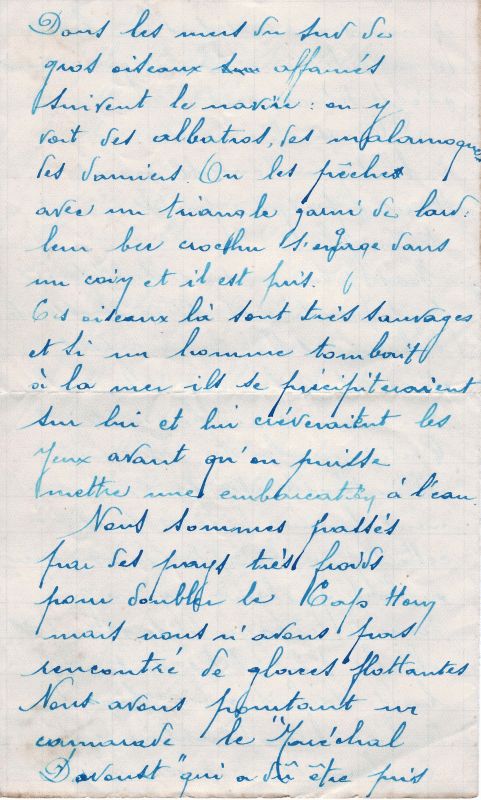 Dans les mers du sud de
gros oiseaux affamés
suivent le navire : on y
voit des albatros, des malamoques
des damiers. On les pêche
avec un triangle garni de lard :
leur bec crochu s'engage dans
un coin et il est pris.
Ces oiseaux là sont très sauvages
et si un homme tombait
à la mer ils se précipiteraient
sur lui et lui crèveraient les
yeux avant qu'on puisse
mettre une embarcation à l'eau
Nous sommes passés
par des pays très froids
pour doubler le Cap Horn
mais nous n'avons pas
rencontré de glaces flottantes
Nous avons pourtant un
camarade le "Maréchal
Davoust" qui a dû être pris